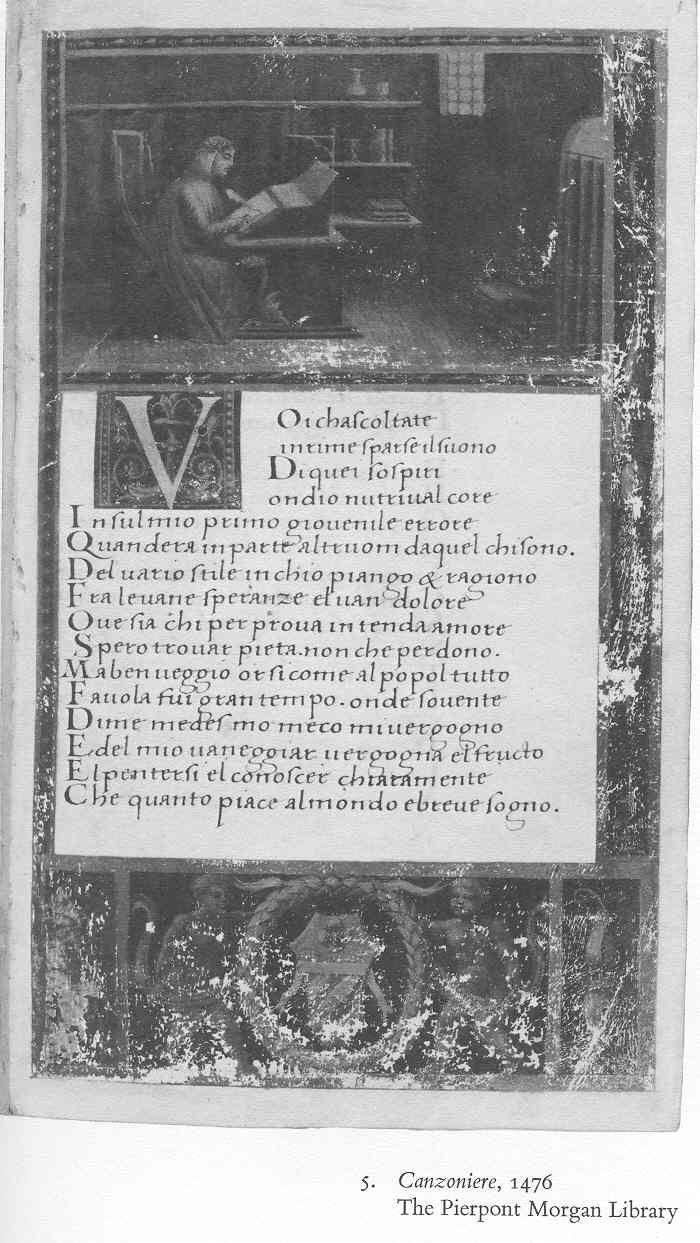 VOi chascoltate
in rime sparse il suono
Di quei sospiri
ondio nutriual core
In sul mio primo giouenile errore
Quandera in parte altruom da quel chi sono.
Del uario stile in chio piango & ragiono
Fra le uane speranze el uan dolore
Oue sia chi per proua intenda amore
Spero trouar pieta. non che perdono.
Ma ben ueggio or si come al popol tutto
Fauola fui gran tempo. onde souente
Di me medesmo meco mi uergogno
E del mio uaneggiar uergogna el fructo
El pentersi el conoscer chiaramente
Che quanto piace al mondo e breue sogno.
5. Canzoniere, 1476
The Pierpont Morgan Library